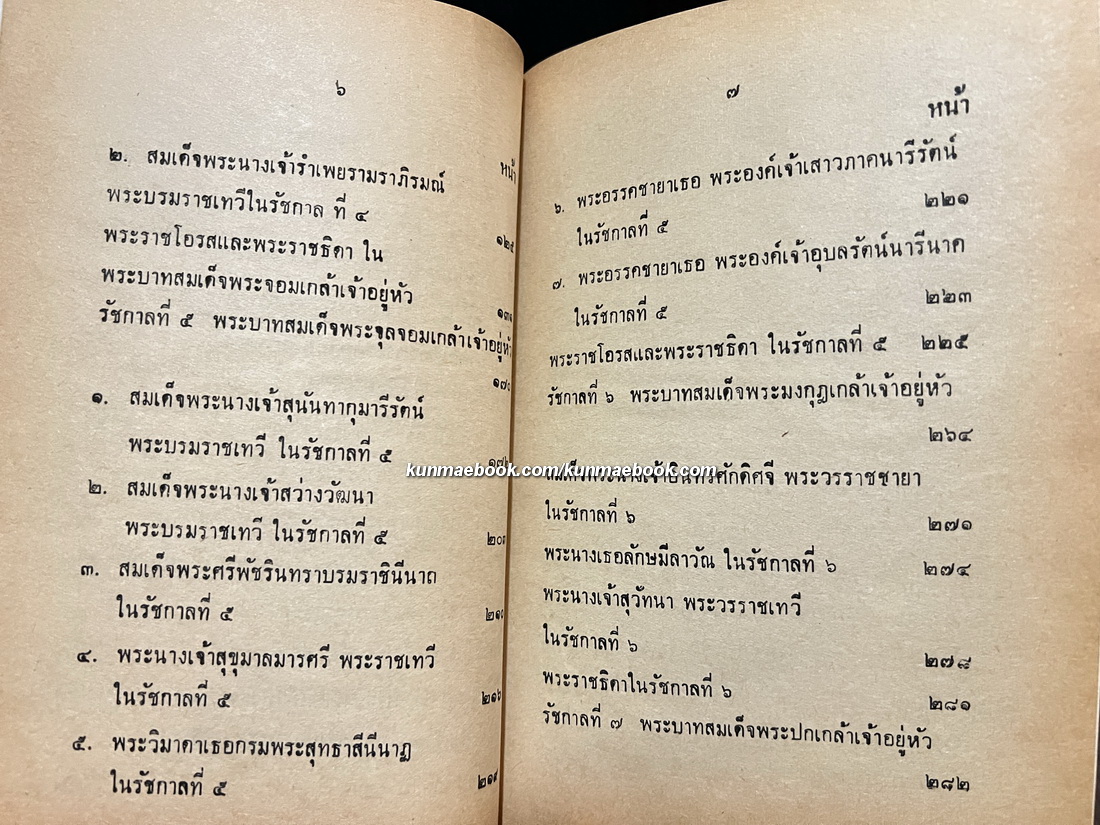 ๖
หน้า
๒. สมเด็จพระนางเจ้ารำเพยรามราภิรมณ์
พระบรมราชเทวีในรัชกาล ที่ ๔
๑๒๕
พระราชโอรสและพระราชธิดา ใน
พระบาทสมเด็จพระจอมเกล้าเจ้าอยู่หัว
รัชกาลที่ ๕ พระบาทสมเด็จพระจุลจอมเกล้าเจ้าอยู่หัว
๑. สมเด็จพระนางเจ้าสุนันทากุมารีรัตน์
พระบรมราชเทวี ในรัชกาลที่ ๕
๒. สมเด็จพระนางเจ้าสว่างวัฒนา
พระบรมราชเทวี ในรัชกาลที่ ๕
๓. สมเด็จพระศรีพัชรินทราบรมราชินีนาถ
ในรัชกาลที่ ๕ ๒๑๐
๔. พระนางเจ้าสุขุมาลมารศรี พระราชเทวี
ในรัชกาลที่ ๕ ๒๑๖
๕. พระวิมาดาเธอกรมพระสุทธาสีนีนาฏ
ในรัชกาลที่ ๕ ๒๑๙
๗
หน้า
๖. พระอรรคชายาเธอ พระองค์เจ้าเสาวภาคนารีรัตน์
ในรัชกาลที่ ๕ ๒๒๑
๗. พระอรรคชายาเธอ พระองค์เจ้าอุบลรัตน์นารีนาค
ในรัชกาลที่ ๕ ๒๒๓
พระราชโอรสและพระราชธิดา ในรัชกาลที่ ๕ ๒๒๕
รัชกาลที่ ๖ พระบาทสมเด็จพระมงกุฎเกล้าเจ้าอยู่หัว
๒๖๔
สมเด็จพระนางเจ้าอินทรศักดิศจี พระวรราชชายา
ในรัชกาลที่ ๖ ๒๗๑
พระนางเธอลักษมีลาวัณ ในรัชกาลที่ ๖ ๒๗๔
พระนางเจ้าสุวัทนา พระวรราชเทวี
ในรัชกาลที่ ๖ ๒๗๘
พระราชธิดาในรัชกาลที่ ๖ ๒๘๑
รัชกาลที่ ๗ พระบาทสมเด็จพระปกเกล้าเจ้าอยู่หัว
๒๘๒
kunmaebook.com/kunmaebook.com